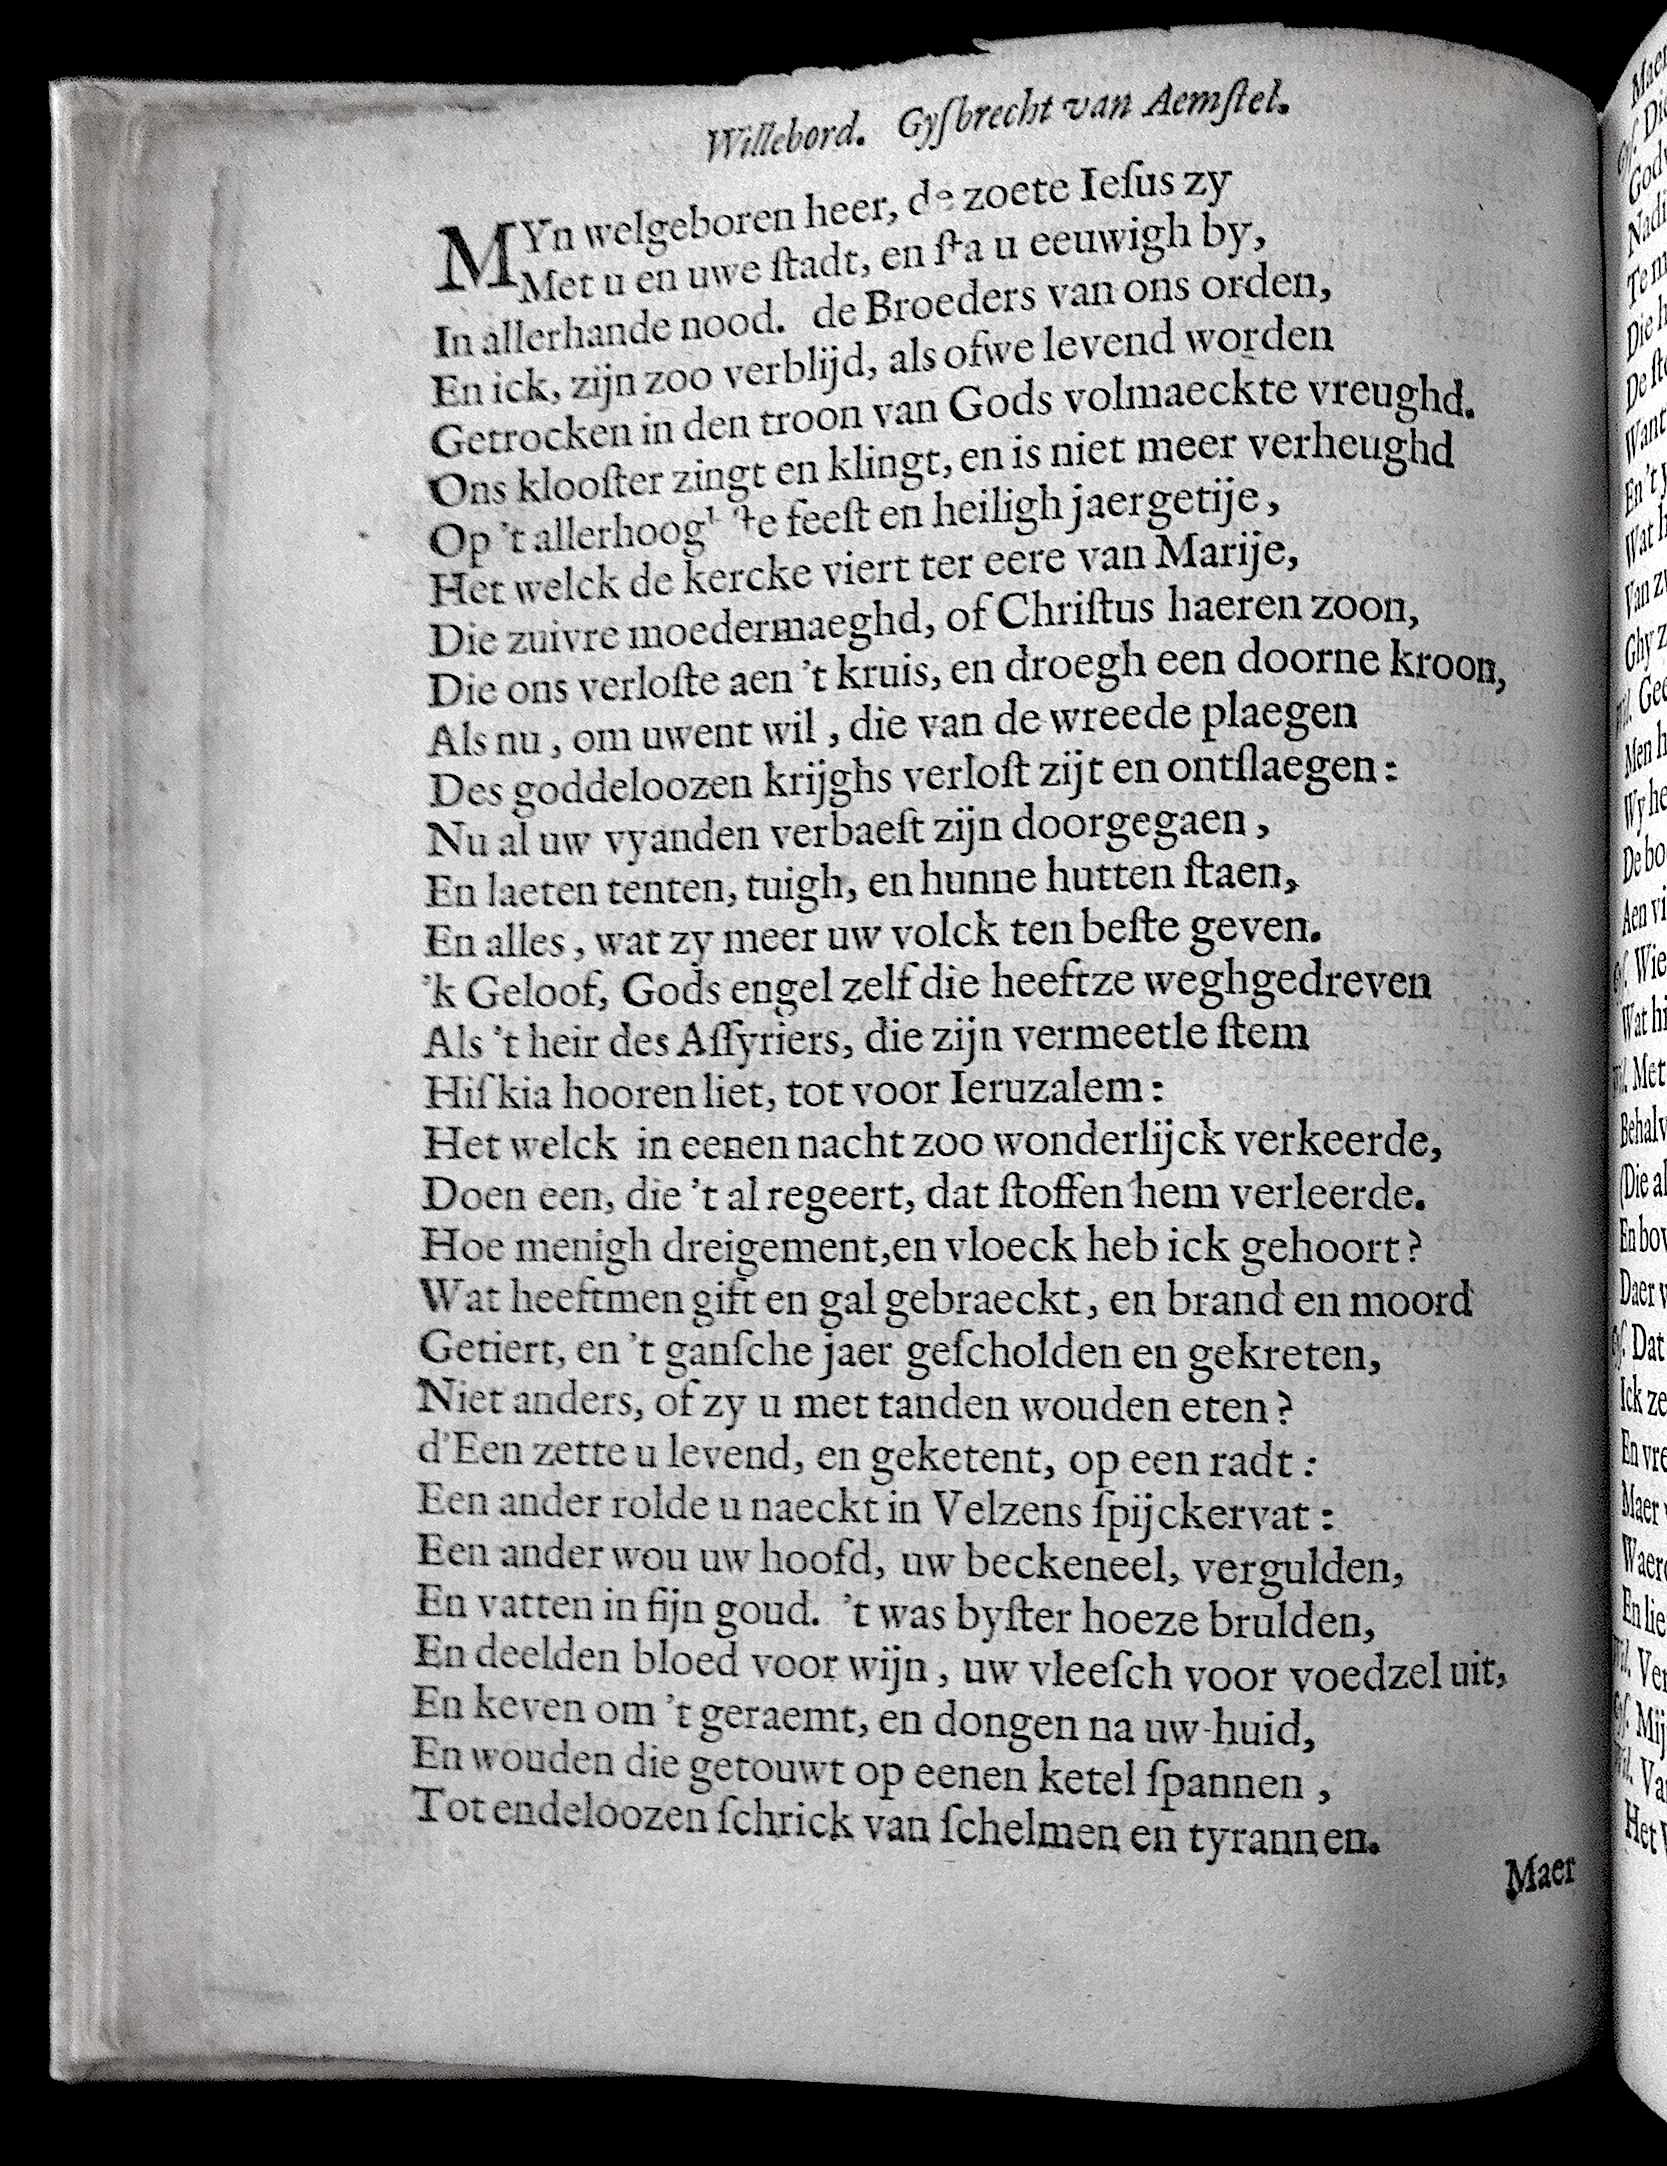 Willebord. Gyſbrecht van Aemſtel.
MYn welgeboren heer, de zoete Ieſus zy
Met u en uwe ſtadt, en ſta u eeuwigh by,
In allerhande nood. de Broeders van ons orden,
En ick, zijn zoo verblijd, als ofwe levend worden
Getrocken in den troon van Gods volmaeckte vreughd.
Ons klooſter zingt en klingt, en is niet meer verheughd
Op 't allerhooghſte feeſt en heiligh jaergetije,
Het welck de kercke viert ter eere van Marije,
Die zuivre moedermaeghd, of Chriſtus haeren zoon,
Die ons verloſte aen 't kruis, en droegh een doorne kroon,
Als nu, om uwent wil, die van de wreede plaegen
Des goddeloozen krijghs verloſt zijt en ontſlaegen:
Nu al uw vyanden verbaeſt zijn doorgegaen,
En laeten tenten, tuigh, en hunne hutten ſtaen,
En alles, wat zy meer uw volck ten beſte geven.
'k Geloof, Gods engel zelf die heeftze weghgedreven
Als 't heir des Aſſyriers, die zijn vermeetle ſtem
Hiſkia hooren liet, tot voor Ieruzalem:
Het welck in eenen nacht zoo wonderlijck verkeerde,
Doen een, die 't al regeert, dat ſtoffen hem verleerde.
Hoe menigh dreigement, en vloeck heb ick gehoort?
Wat heeftmen gift en gal gebraeckt, en brand en moord
Getiert, en 't ganſche jaer geſcholden en gekreten,
Niet anders, of zy u met tanden wouden eten?
d'Een zette u levend, en geketent, op een radt:
Een ander rolde u naeckt in Velzens ſpijckervat:
Een ander wou uw hoofd, uw beckeneel, vergulden,
En vatten in fijn goud. 't was byſter hoeze brulden,
En deelden bloed voor wijn, uw vleeſch voor voedzel uit,
En keven om 't geraemt, en dongen na uw huid,
En wouden die getouwt op eenen ketel ſpannen,
Tot endeloozen ſchrick van ſchelmen en tyrannen.
Maer